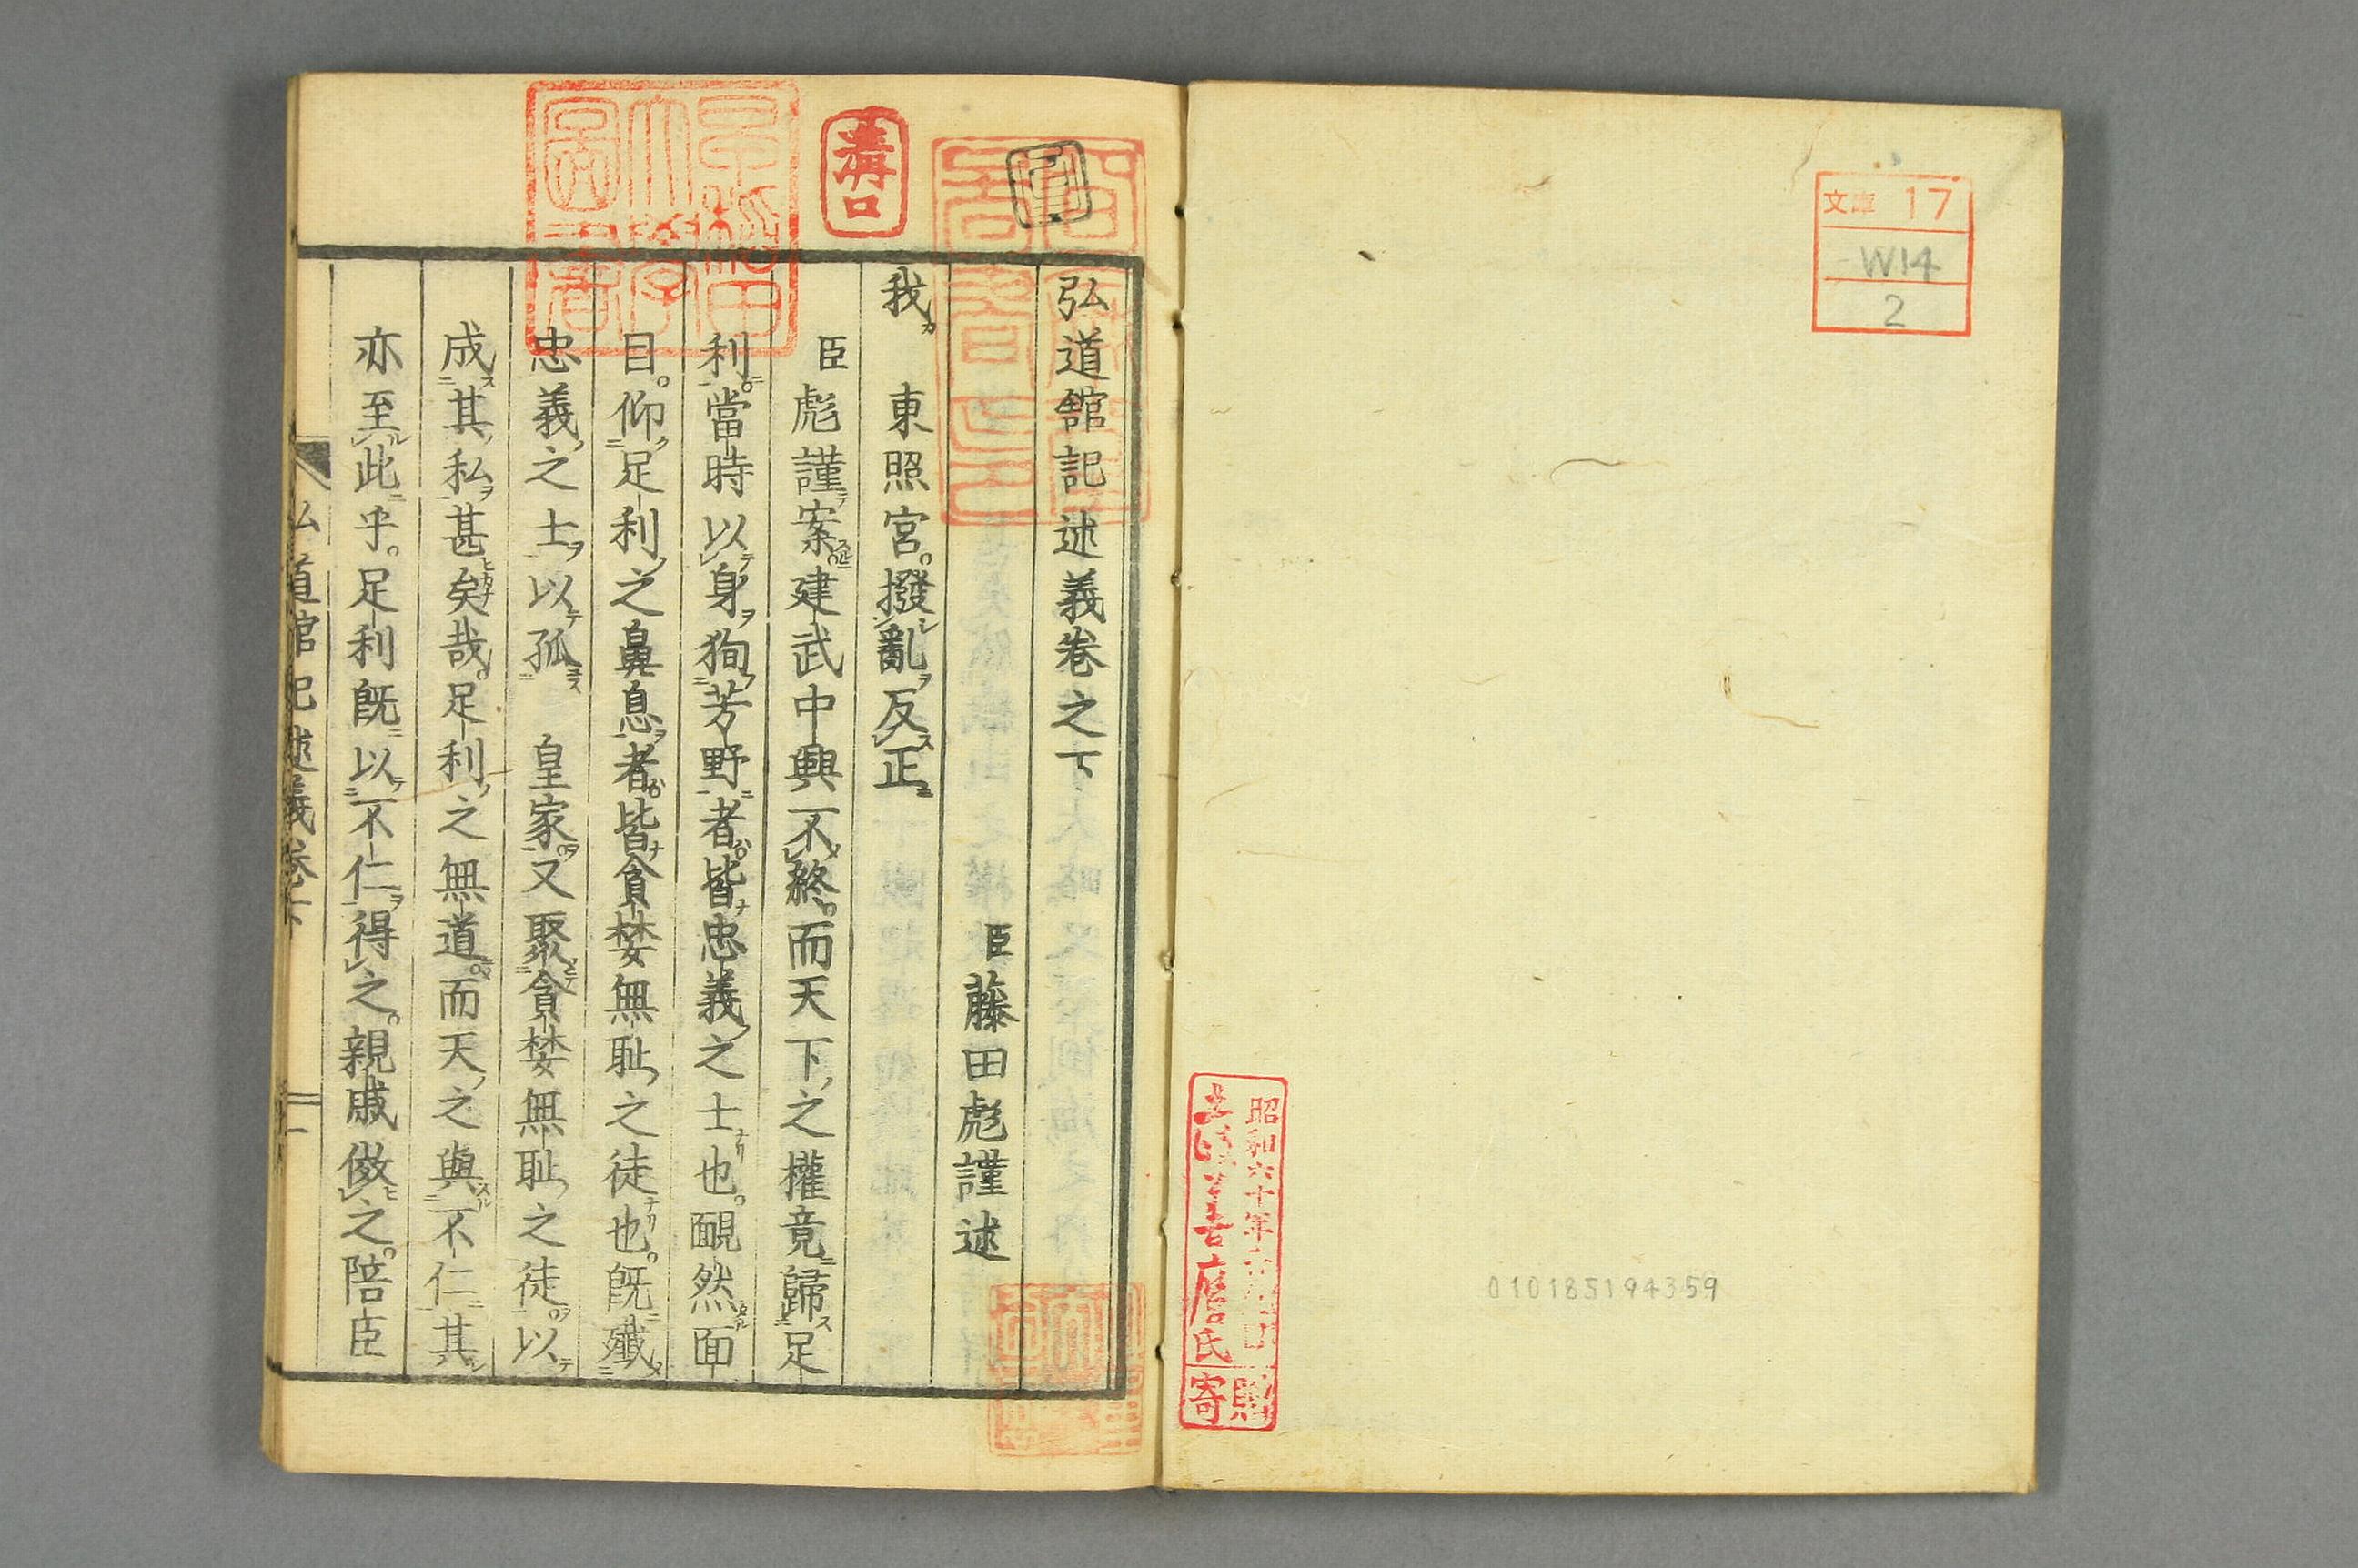 文庫 17
W14
2
昭和六十年
氏
寄贈
010185194359
溝口
弘道館記述義卷之下
臣藤田彪謹述
我 東照宮。撥亂反正
臣彪謹案。建武中興不終。而天下之權竟歸足
利。當時以身狥芳野者。皆忠義之士也。靦然面
目。仰足利之鼻息者。皆貪婪無耻之徒也。旣殲
忠義之士。以孤 皇家。又聚貪婪無耻之徒。以
成其私。甚矣哉。足利之無道。而天之與不仁。其
亦至此乎。足利旣以不仁得之。親戚倣之。陪臣
弘道館記述義卷下 一